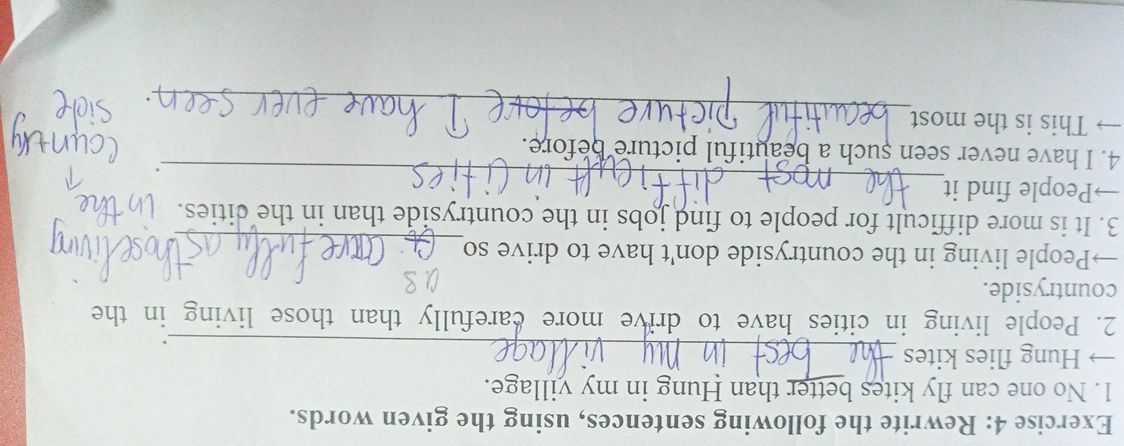 Exercise 4: Rewrite the following sentences, using the given words.
1. No one can fly kites better than Hung in my village.
→ Hung flies kites the best in my village.
2. People living in cities have to drive more carefully than those living in the
countryside.
as
→People living in the countryside don't have to drive so carefully as those living
in the country side
3. It is more difficult for people to find jobs in the countryside than in the cities.
→People find it the most difficult in cities.
4. I have never seen such a beautiful picture before.
→ This is the most beautiful picture before I have ever seen.